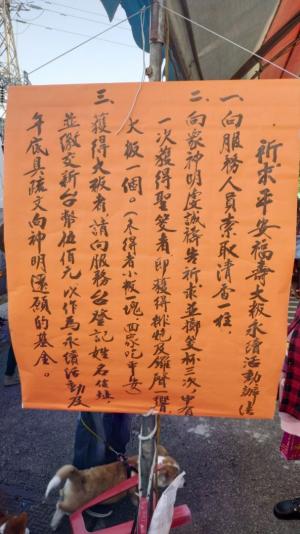 祈求平安福壽大粄永續活動辦法
一、向服務人員索取清香一柱。
二、向眾神明虔誠禱告祈求並擲筊杯三次，中有
一次獲得聖筊者，即獲得拋炮及羅盾
大粄一個。(未得者小粄一塊 回家吃平安)
三、獲得大粄者請向服務台登記姓名住址
並繳交新台幣伍佰元，以作為永續活動及
年底具疏文向神明還願的基金。